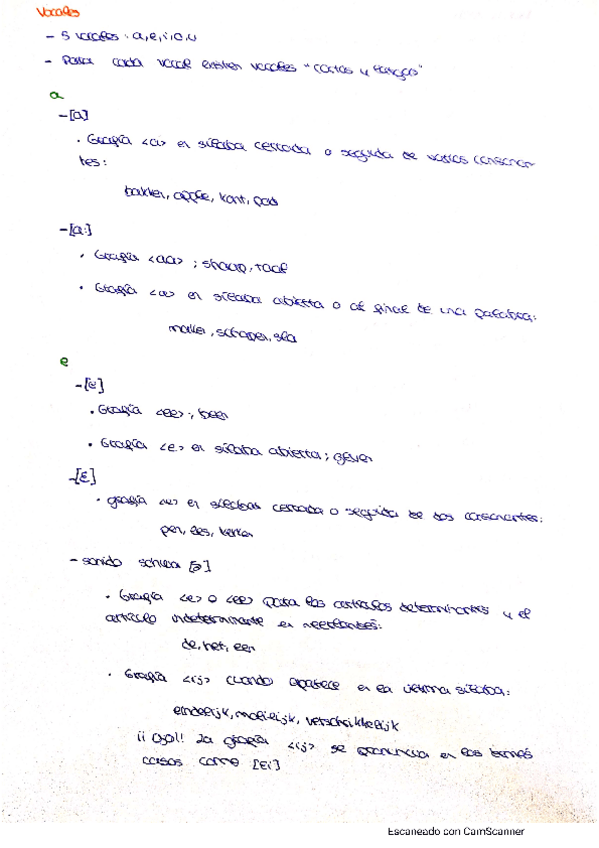 Vocales
- 5 vocales: a, e, i, o, u
- Para cada vocal existen vocales "cortas y largas"
a
- [a]
· Grafía <a> en sílaba cerrada o seguida de varias consonan-
tes:
bakker, appel, kant, pad
- [a:]
· Grafía <aa>; shaap, raaf
· Grafía <a> en sílaba abierta o al final de una palabra:
maken, schapen, sla
e
- [e]
· Grafía <ee>; been
· Grafía <e> en sílaba abierta; geven
- [ɛ]
· grafía <e> en sílabas cerrada o seguida de dos consonantes:
pen, les, kerken
- sonido schwa [ə]
· Grafía <e> o <ee> para los artículos determinantes y el
artículo indeterminante en neerlandés:
de, het, een
· Grafía <ij> cuando aparece en la última sílaba:
eindelijk, moeilijk, verschrikkelijk
¡¡ Ojo!! La grafía <ij> se pronuncia en los demás
casos como [Ei]
Escaneado con CamScanner